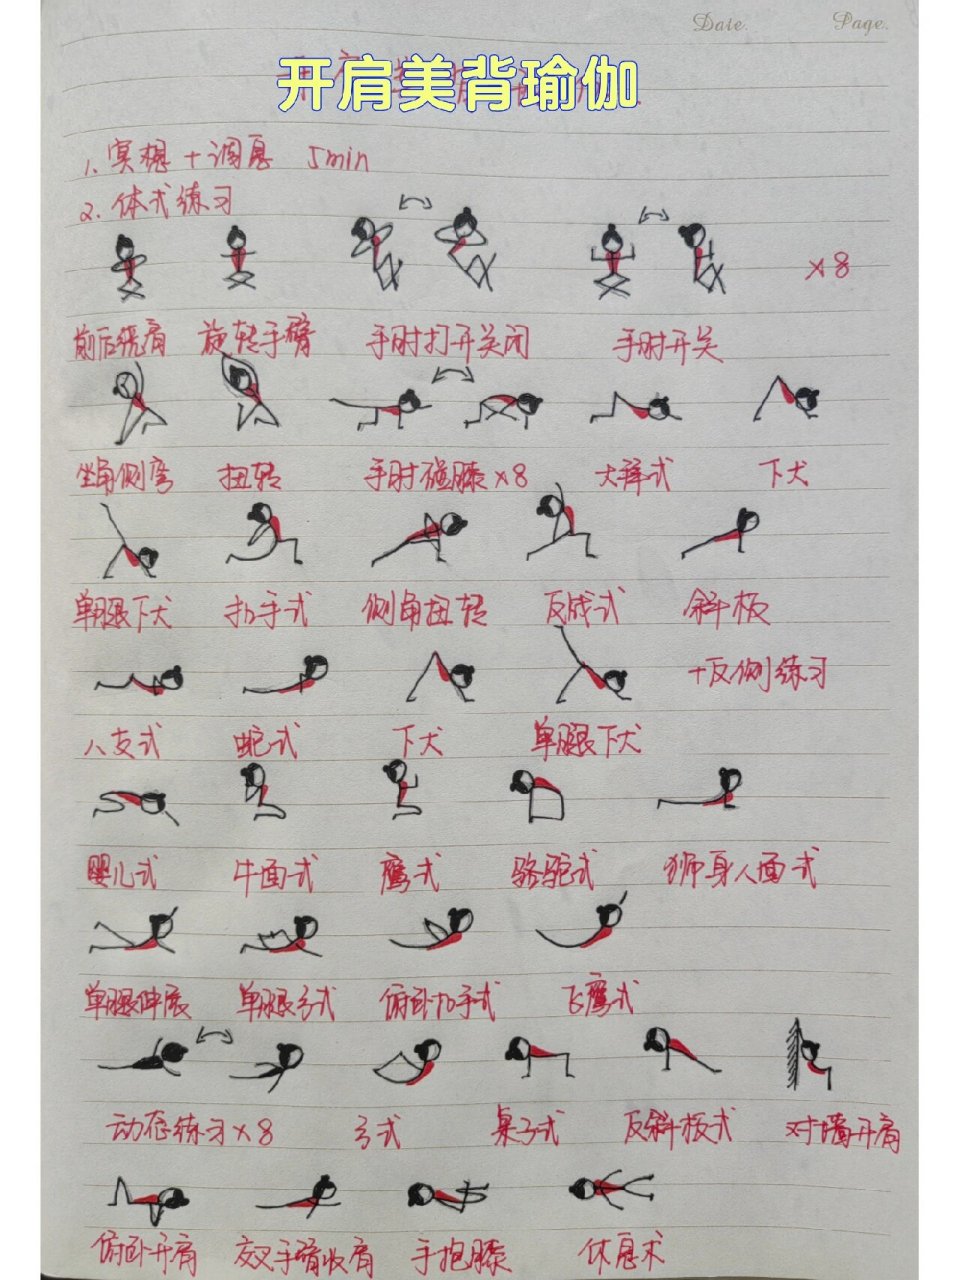 Date.	Page.
开肩美背瑜伽
1. 冥想+调息 5min
2. 体式练习
×8
前后绕肩 旋转手臂 手肘打开关闭 手肘开关
坐角侧弯 扭转 手肘碰膝×8 大拜式 下犬
单腿下犬 扣手式 侧角扭转 反战式 斜板
+反侧练习
八支式 蛇式 下犬 单腿下犬
婴儿式 牛面式 鹰式 骆驼式 狮身人面式
单腿伸展 单腿弓式 俯卧扣手式 飞鹰式
动态练习×8 弓式 桌子式 反斜板式 对墙开肩
俯卧开肩 交叉手臂收肩 手抱膝 休息术